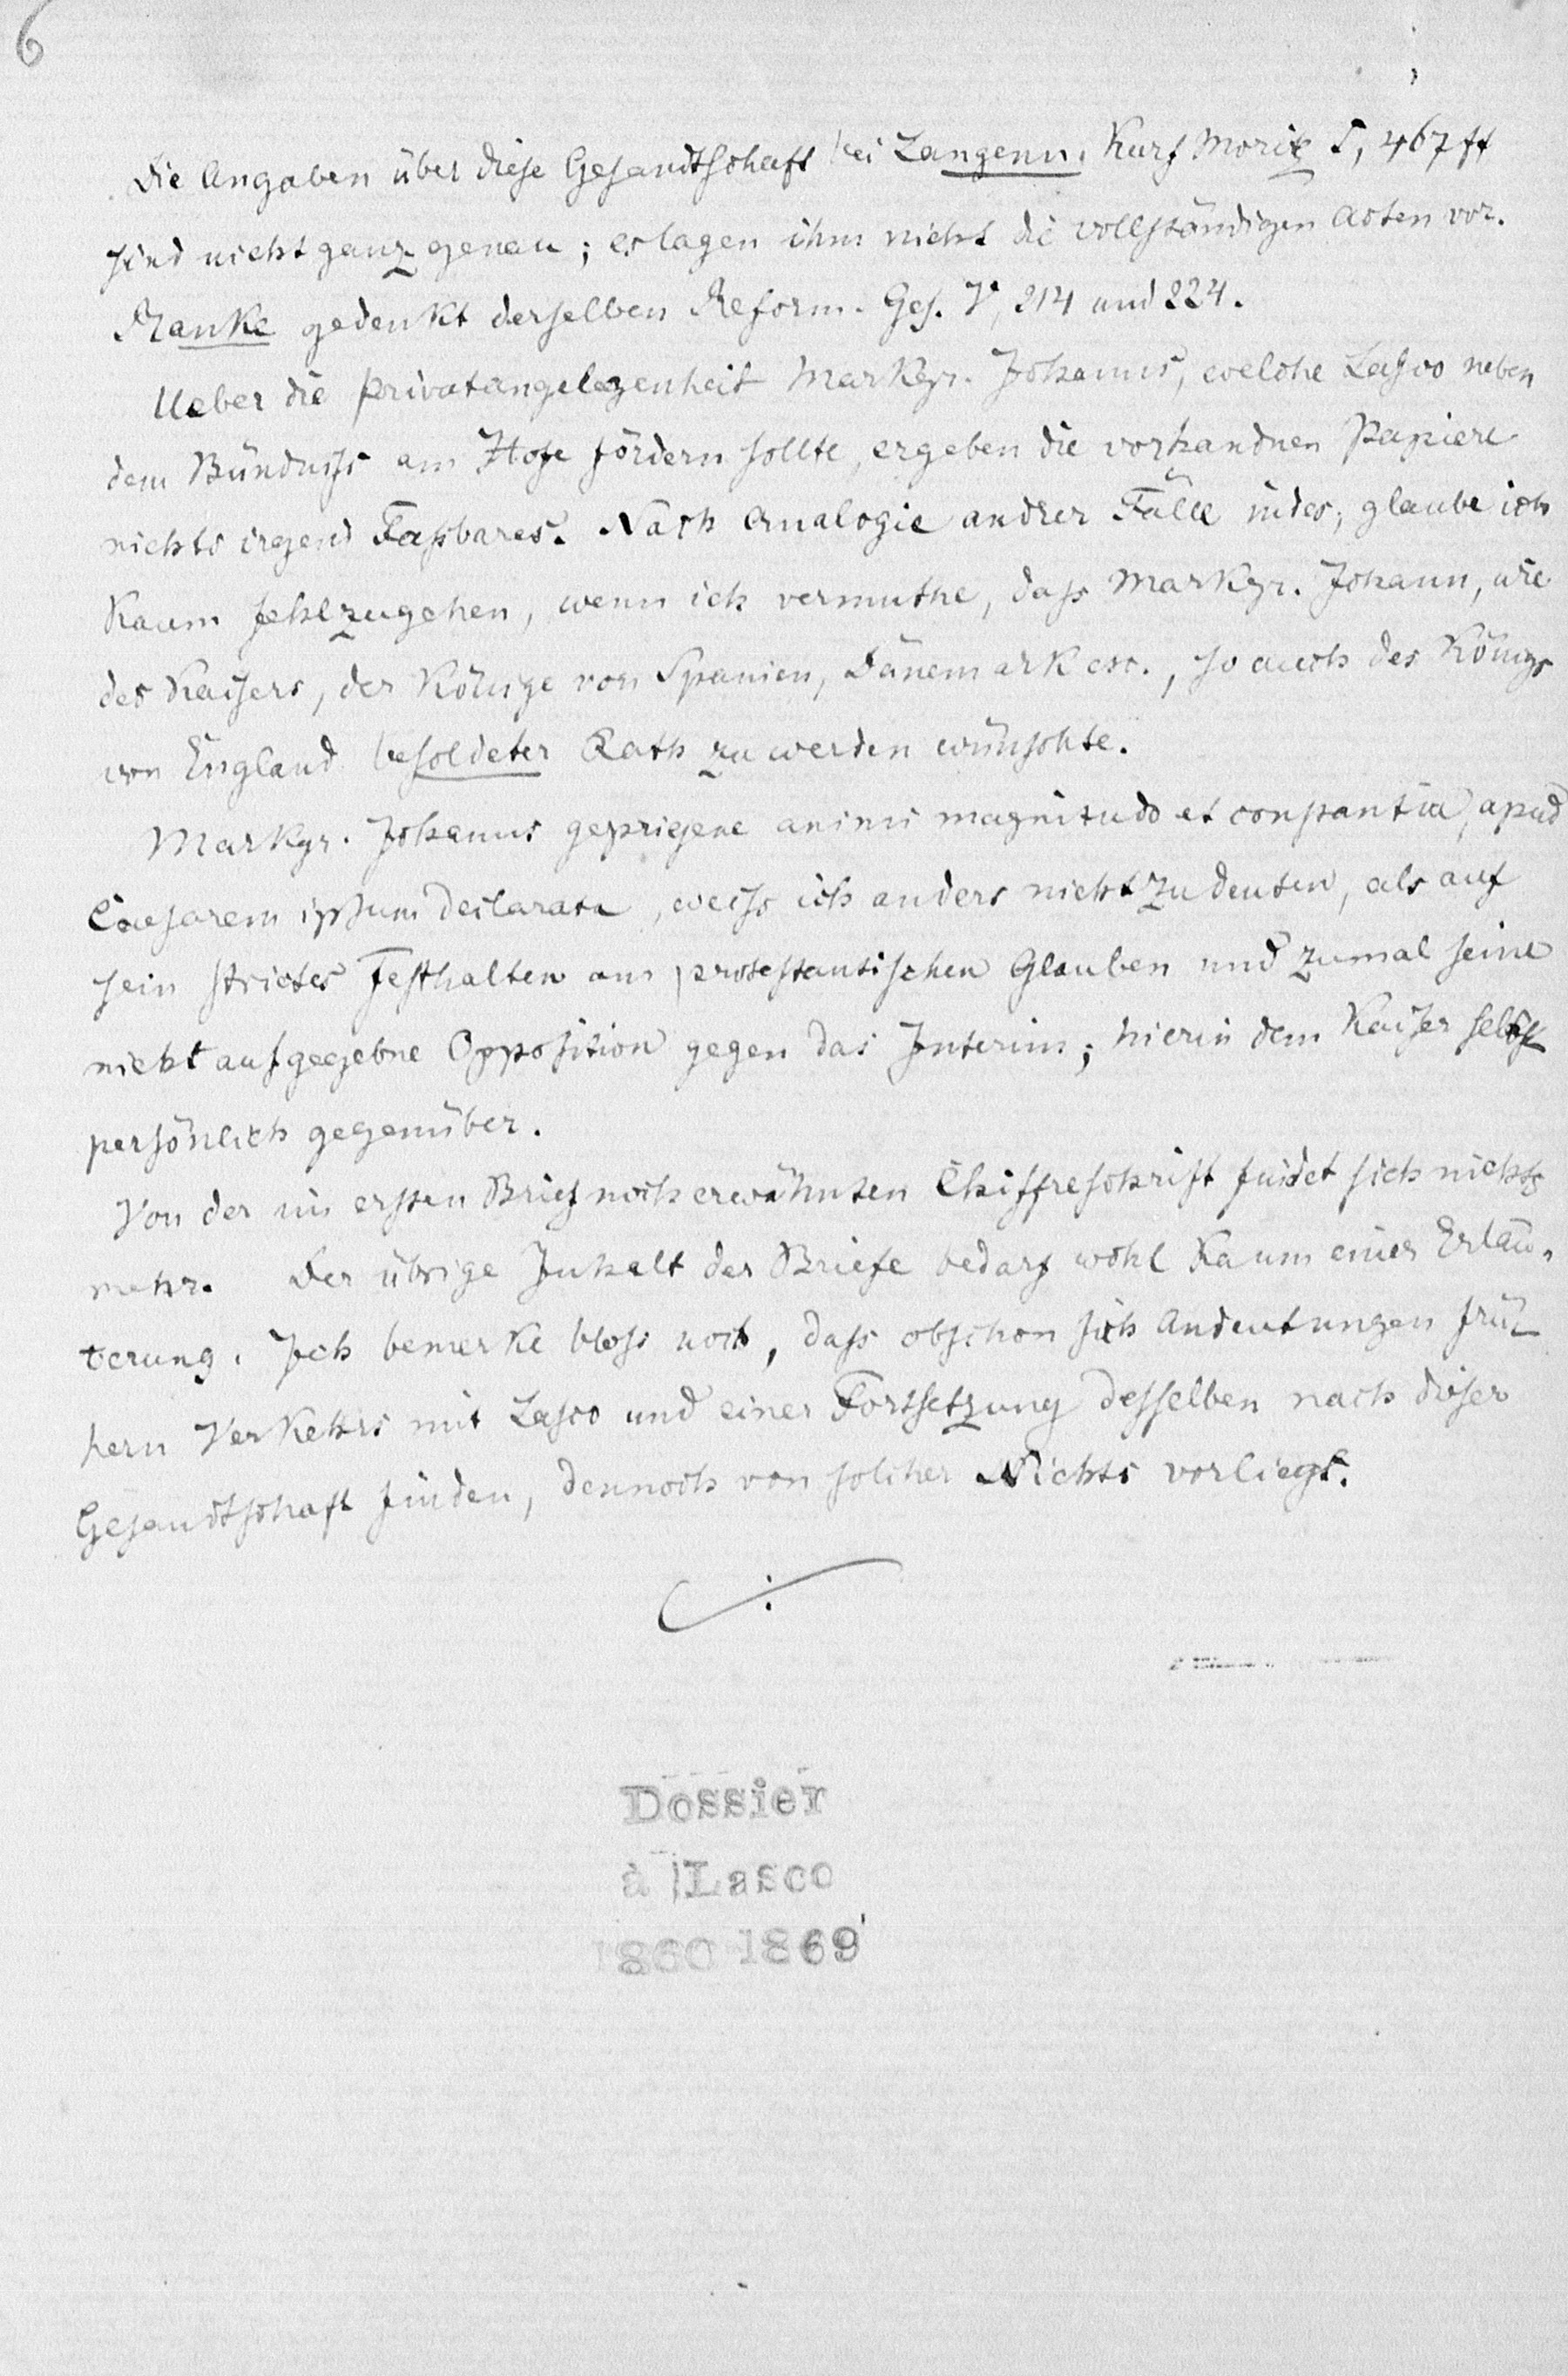 6
Die Angaben über diese Gesandtschaft bei Langenn. Kurf Moritz I, 467 ff
sind nicht ganz genau; es lagen ihm nicht die vollständigen Acten vor.
Ranke gedenkt derselben Reform. Ges. V, 214 und 224.
Ueber die Privatangelegenheit Markgr. Johanns, welche Lasco neben
dem Bündniss am Hofe fördern sollte, ergeben die vorhandnen Papiere
nichts irgend Fassbares. Nach Analogie andrer Fälle indes, glaube ich
kaum fehlzugehen, wenn ich vermuthe, dass Markgr. Johann, wie
des Kaisers, der Könige von Spanien, Dänemark etc., so auch des Königs
von England besoldeter Rath zu werden wünschte.
Markgr. Johanns gepriesene animi magnitudo et constantia, apud
Caesarem ipsum declarata, weiss ich anders nicht zu deuten, als auf
sein strictes Festhalten am protestantischen Glauben und zumal seine
nicht aufgegebne Opposition gegen das Interim; hierin dem Kaiser selbst
persönlich gegenüber.
Von der im ersten Brief noch erwähnten Chiffreschrift findet sich nichts
mehr. Der übrige Inhalt der Briefe bedarf wohl kaum einer Erläu-
terung. Ich bemerke bloss noch, dass obschon sich Andeutungen frü-
hern Verkehrs mit Lasco und einer Fortsetzung desselben nach dieser
Gesandtschaft finden, dennoch von solcher Nichts vorliegt.
Dossier
à Lasco
1860 1869